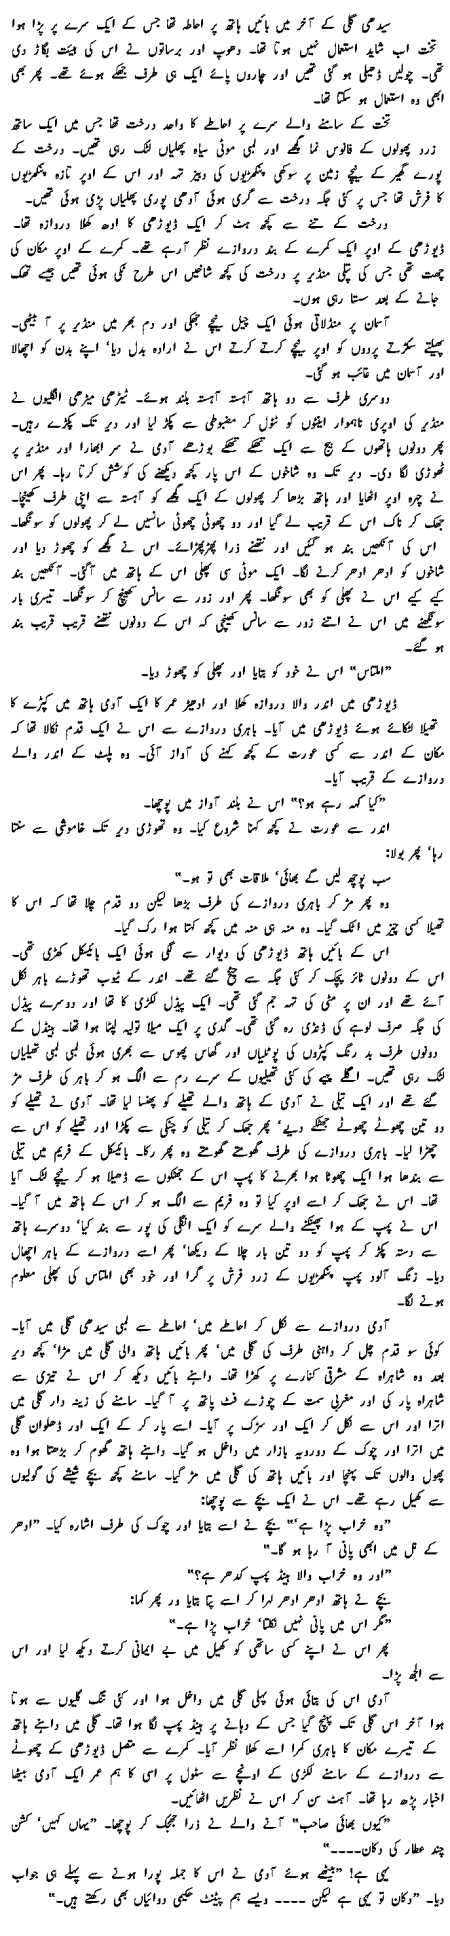 سیدھی گلی کے آخر میں بائیں ہاتھ پر احاطہ تھا جس کے ایک سرے پر پڑا ہوا
تخت اب شاید استعمال نہیں ہوتا تھا۔ دھوپ اور برساتوں نے اس کی ہیئت بگاڑ دی
تھی۔ چولیں ڈھیلی ہو گئی تھیں اور چاروں پائے ایک ہی طرف جھکے ہوئے تھے۔ پھر بھی
ابھی وہ استعمال ہو سکتا تھا۔
تخت کے سامنے والے سرے پر احاطے کا واحد درخت تھا جس میں ایک ساتھ
زرد پھولوں کے فانوس نما گچھے اور لمبی موٹی سیاہ پھلیاں لٹک رہی تھیں۔ درخت کے
پورے گھیر کے نیچے زمین پر سوکھی پنکھڑیوں کی دبیز تہہ اور اس کے اوپر تازہ پنکھڑیوں
کا فرش تھا جس پر کئی جگہ درخت سے گری ہوئی آدھی پوری پھلیاں پڑی ہوئی تھیں۔
درخت کے تنے سے کچھ ہٹ کر ایک ڈیوڑھی کا ادھ کھلا دروازہ تھا۔
ڈیوڑھی کے اوپر ایک کمرے کے بند دروازے نظر آرہے تھے۔ کمرے کے اوپر مکان کی
چھت تھی جس کی پتلی منڈیر پر درخت کی کچھ شاخیں اس طرح ٹکی ہوئی تھیں جیسے تھک
جانے کے بعد سستا رہی ہوں۔
آسمان پر منڈلاتی ہوئی ایک چیل نیچے جھکی اور دم بھر میں منڈیر پر آ بیٹھی۔
پھیلتے سکڑتے پردوں کو اوپر نیچے کرتے کرتے اس نے ارادہ بدل دیا' اپنے بدن کو اچھالا
اور آسمان میں غائب ہو گئی۔
دوسری طرف سے دو ہاتھ آہستہ آہستہ بلند ہوئے۔ ٹیڑھی میڑھی انگلیوں نے
منڈیر کی اوپری ناہموار اینٹوں کو ٹٹول کر مضبوطی سے پکڑ لیا اور دیر تک پکڑے رہیں۔
پھر دونوں ہاتھوں کے بیچ سے ایک تھکے تھکے بوڑھے آدمی نے سر ابھارا اور منڈیر پر
ٹھوڑی لگا دی۔ دیر تک وہ شاخوں کے اس پار کچھ دیکھنے کی کوشش کرتا رہا۔ پھر اس
نے چہرہ اوپر اٹھایا اور ہاتھ بڑھا کر پھولوں کے ایک گچھے کو آہستہ سے اپنی طرف کھینچا۔
جھک کر ناک اس کے قریب لے گیا اور دو چھوٹی چھوٹی سانسیں لے کر پھولوں کو سونگھا۔
اس کی آنکھیں بند ہو گئیں اور نتھنے ذرا پھڑپھڑائے۔ اس نے گچھے کو چھوڑ دیا اور
شاخوں کو ادھر ادھر کرنے لگا۔ ایک موٹی سی پھلی اس کے ہاتھ میں آگئی۔ آنکھیں بند
کیے کیے اس نے پھلی کو بھی سونگھا۔ پھر اور زور سے سانس کھینچ کر سونگھا۔ تیسری بار
سونگھنے میں اس نے اتنے زور سے سانس کھینچی کہ اس کے دونوں نتھنے قریب قریب بند
ہو گئے۔
"املتاس" اس نے خود کو بتایا اور پھلی کو چھوڑ دیا۔
ڈیوڑھی میں اندر والا دروازہ کھلا اور ادھیڑ عمر کا ایک آدمی ہاتھ میں کپڑے کا
تھیلا لٹکائے ہوئے ڈیوڑھی میں آیا۔ باہری دروازے سے اس نے ایک قدم نکالا تھا کہ
مکان کے اندر سے کسی عورت کے کچھ کہنے کی آواز آئی۔ وہ پلٹ کے اندر والے
دروازے کے قریب آیا۔
"کیا کہہ رہے ہو؟" اس نے بلند آواز میں پوچھا۔
اندر سے عورت نے کچھ کہنا شروع کیا۔ وہ تھوڑی دیر تک خاموشی سے سنتا
رہا' پھر بولا:
سب پوچھ لیں گے بھائی' ملاقات بھی تو ہو۔"
وہ پھر مڑ کر باہری دروازے کی طرف بڑھا لیکن دو قدم چلا تھا کہ اس کا
تھیلا کسی چیز میں اٹک گیا۔ وہ منہ ہی منہ میں کچھ کہتا ہوا رک گیا۔
اس کے بائیں ہاتھ ڈیوڑھی کی دیوار سے لگی ہوئی ایک بائیکل کھڑی تھی۔
اس کے دونوں ٹائر پچک کر کئی جگہ سے چیخ گئے تھے۔ اندر کے ٹیوب تھوڑے باہر نکل
آئے تھے اور ان پر مٹی کی تہہ جم گئی تھی۔ ایک پیڈل لکڑی کا تھا اور دوسرے پیڈل
کی جگہ صرف لوہے کی ڈنڈی رہ گئی تھی۔ گدی پر ایک میلا تولیہ لپٹا ہوا تھا۔ ہینڈل کے
دونوں طرف بد رنگ کپڑوں کی پوٹلیاں اور گھاس پھوس سے بھری ہوئی لمبی لمبی تھیلیاں
لٹک رہی تھیں۔ اگلے پہیے کی کئی تیلیوں کے سرے رم سے الگ ہو کر باہر کی طرف مڑ
گئے تھے اور ایک تیلی نے آدمی کے ہاتھ والے تھیلے کو پھنسا لیا تھا۔ آدمی نے تھیلے کو
دو تین چھوٹے چھوٹے جھٹکے دیے' پھر جھک کر تیلی کو چٹکی سے پکڑا اور تھیلے کو اس سے
چھڑا لیا۔ باہری دروازے کی طرف گھومتے گھومتے وہ پھر رکا۔ بائیکل کے فریم میں تیلی
سے بندھا ہوا ایک چھوٹا ہوا بھرنے کا پمپ اس کے جھٹکوں سے ڈھیلا ہو کر نیچے لٹک آیا
تھا۔ اس نے جھک کر اسے اوپر کیا تو وہ فریم سے الگ ہو کر اس کے ہاتھ میں آ گیا۔
اس نے پمپ کے ہوا پھینکنے والے سرے کو ایک انگلی کی پور سے بند کیا' دوسرے ہاتھ
سے دستہ پکڑ کر پمپ کو دو تین بار چلا کے دیکھا' پھر اسے دروازے کے باہر اچھال
دیا۔ زنگ آلود پمپ پنکھڑیوں کے زرد فرش پر گرا اور خود بھی املتاس کی پھلی معلوم
ہونے لگا۔
آدمی دروازے سے نکل کر احاطے میں' احاطے سے لمبی سیدھی گلی میں آیا۔
کوئی سو قدم چل کر داہنی طرف کی گلی میں' پھر بائیں ہاتھ والی گلی میں مڑا' کچھ دیر
بعد وہ شاہراہ کے مشرقی کنارے پر کھڑا تھا۔ داہنے بائیں دیکھ کر اس نے تیزی سے
شاہراہ پار کی اور مغربی سمت کے چوڑے فٹ پاتھ پر آ گیا۔ سامنے کی زینہ دار گلی میں
اترا اور اس سے نکل کر ایک اور سڑک پر آیا۔ اسے پار کر کے ایک اور ڈھلوان گلی
میں اترا اور چوک کے دورویہ بازار میں داخل ہو گیا۔ داہنے ہاتھ گھوم کر بڑھتا ہوا وہ
پھول والوں تک پہنچا اور بائیں ہاتھ کی گلی میں مڑ گیا۔ سامنے کچھ بچے شیشے کی گولیوں
سے کھیل رہے تھے۔ اس نے ایک بچے سے پوچھا:
"وہ خراب پڑا ہے'" بچے نے اسے بتایا اور چوک کی طرف اشارہ کیا۔ "ادھر
کے نل میں ابھی پانی آ رہا ہو گا۔"
"اور وہ خراب والا ہینڈ پمپ کدھر ہے؟"
بچے نے ہاتھ ادھر ادھر لہرا کر اسے پتا بتایا ور پھر کہا:
"مگر اس میں پانی نہیں نکلتا' خراب پڑا ہے۔"
پھر اس نے اپنے کسی ساتھی کو کھیل میں بے ایمانی کرتے دیکھ لیا اور اس
سے الجھ پڑا۔
آدمی اس کی بتائی ہوئی پہلی گلی میں داخل ہوا اور کئی تنگ گلیوں سے ہوتا
ہوا آخر اس گلی تک پہنچ گیا جس کے دہانے پر ہینڈ پمپ لگا ہوا تھا۔ گلی میں داہنے ہاتھ
کے تیسرے مکان کا باہری کمرا اسے کھلا نظر آیا۔ کمرے سے متصل ڈیوڑھی کے چھوٹے
سے دروازے کے سامنے لکڑی کے اونچے سے سٹول پر اسی کا ہم عمر ایک آدمی بیٹھا
اخبار پڑھ رہا تھا۔ آہٹ سن کر اس نے نظریں اٹھائیں۔
"کیوں بھائی صاحب" آنے والے نے ذرا جھجک کر پوچھا۔ "یہاں کہیں' کشن
چند عطار کی دکان۔۔۔۔"
یہی ہے! "بیٹھے ہوئے آدمی نے اس کا جملہ پورا ہونے سے پہلے ہی جواب
دیا۔ "دکان تو یہی ہے لیکن ۔۔۔۔ ویسے ہم پیٹنٹ حکیمی دوائیاں بھی رکھتے ہیں۔"